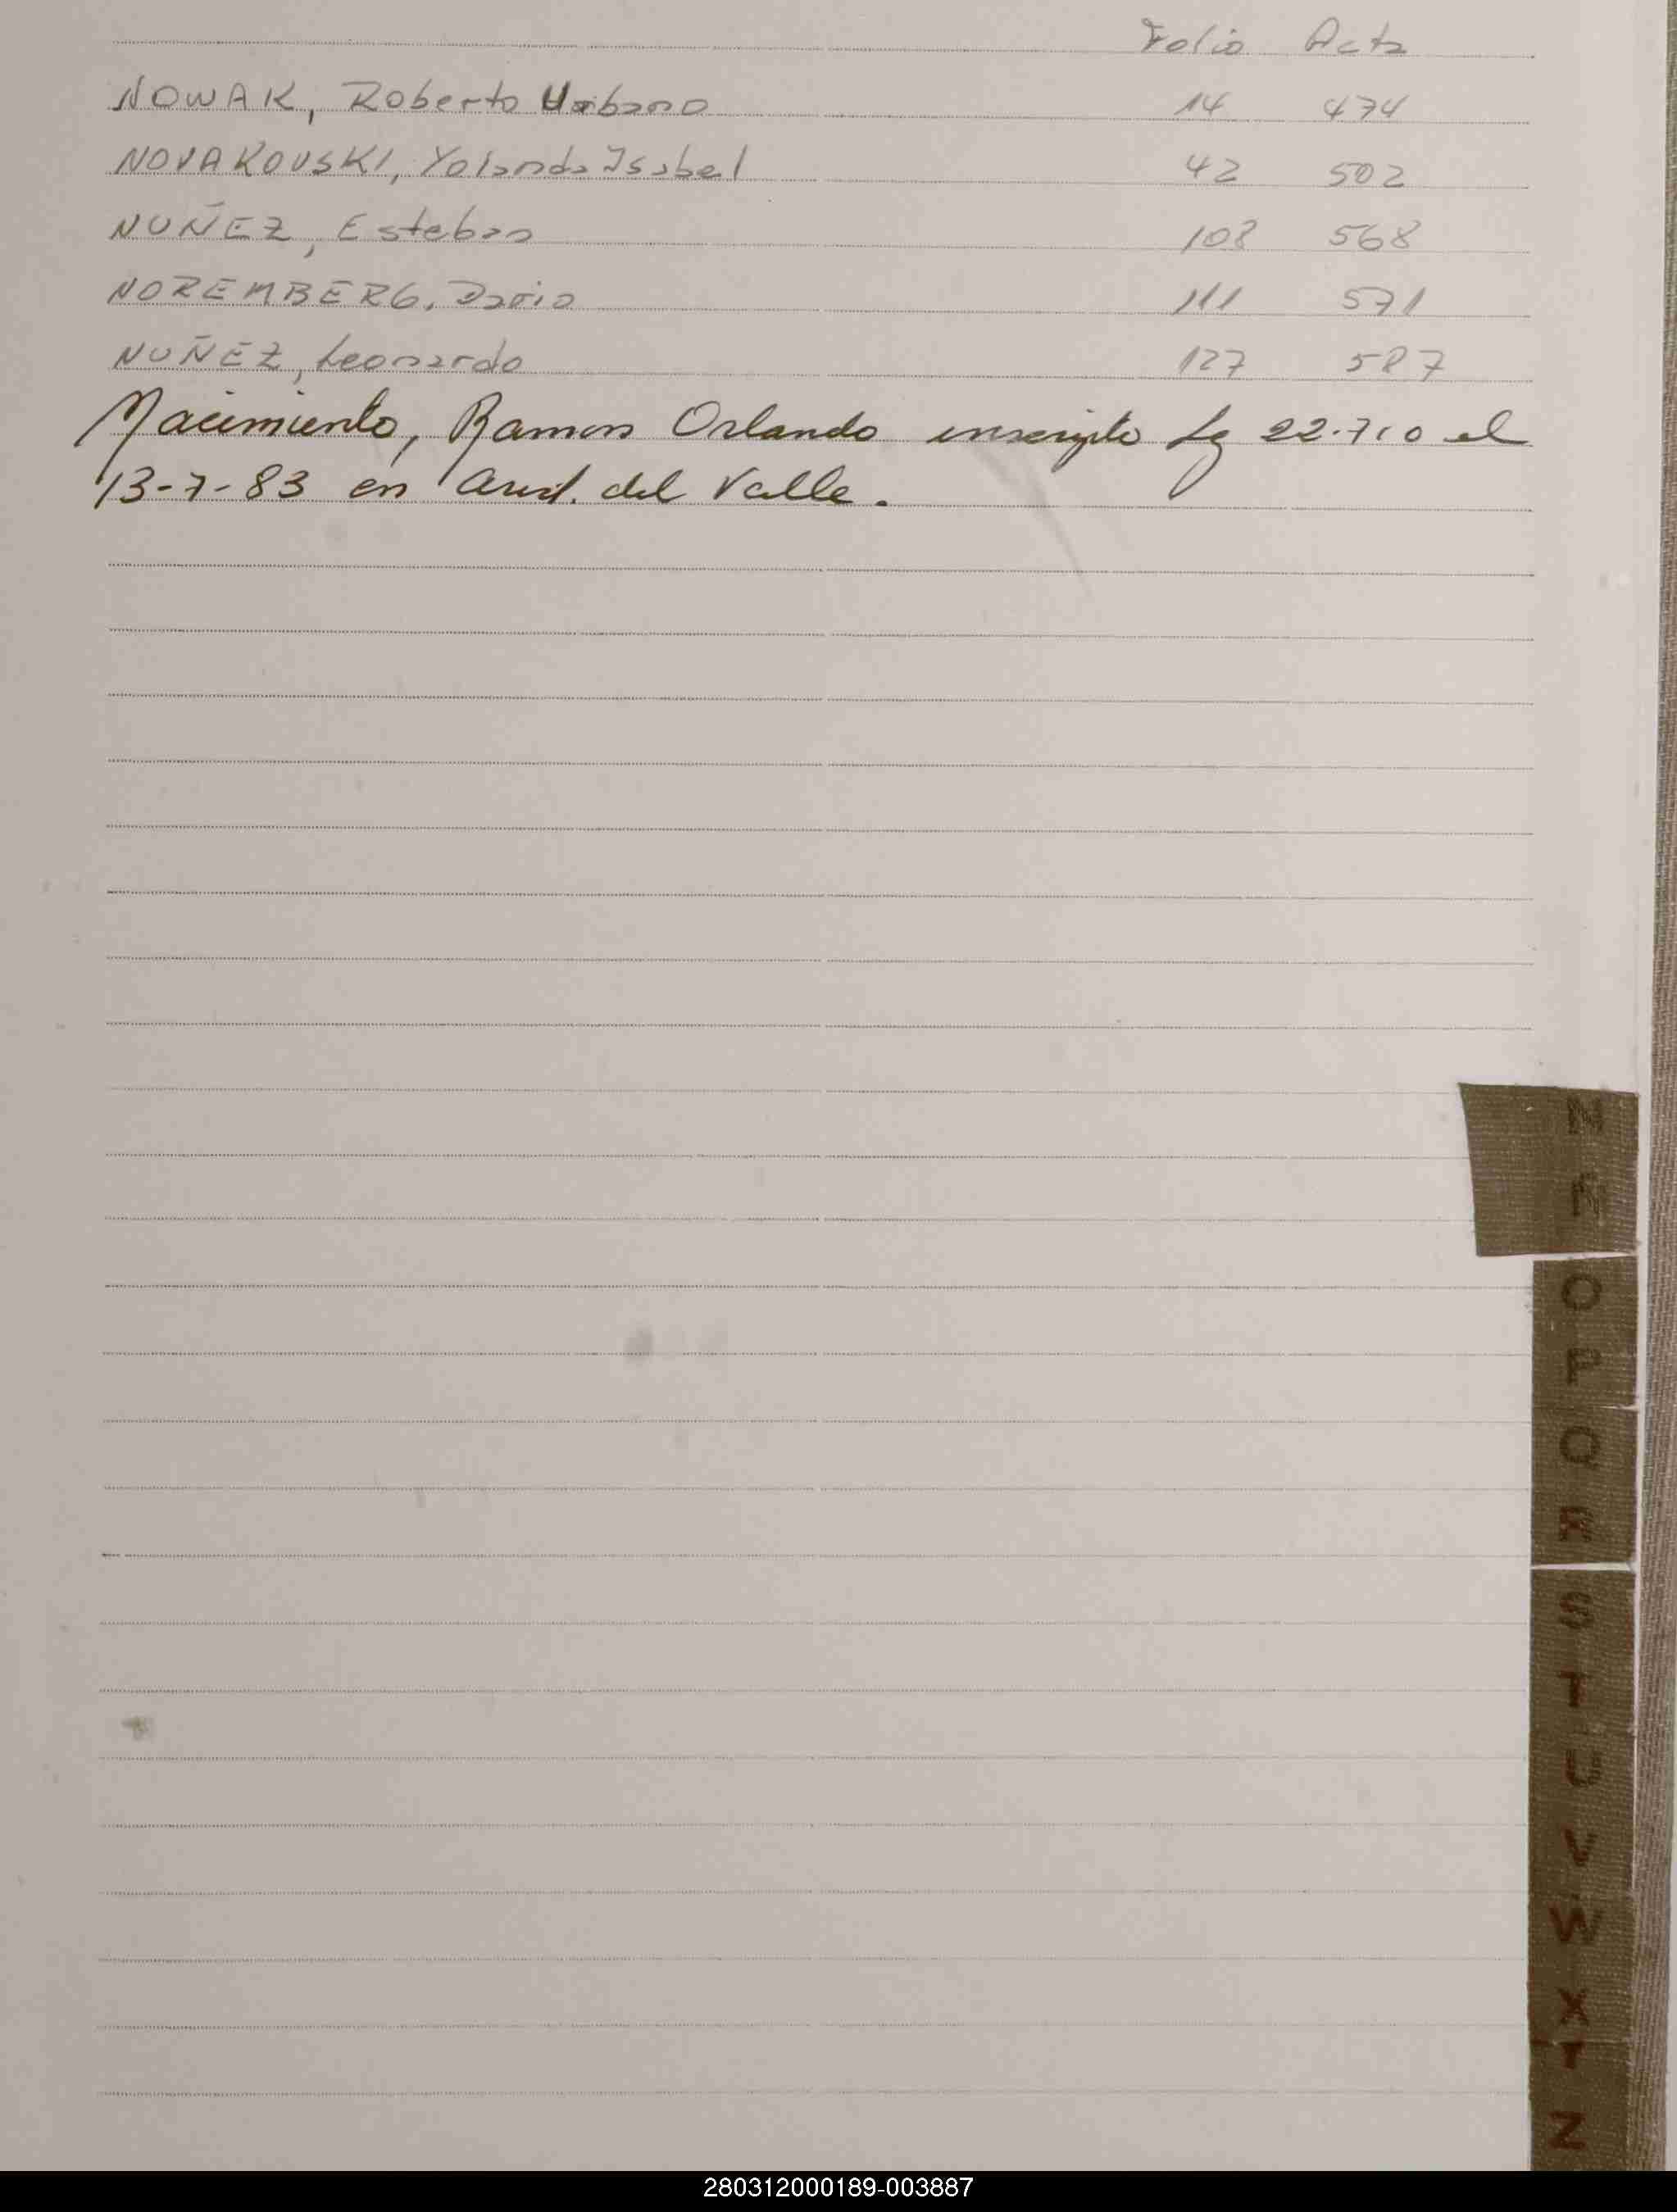 Folio Acta
NOWAK, Roberto Urbano 14 474
NOVAKOVSKI, Yolanda Isabel 42 502
NUÑEZ, Esteban 108 568
NOREMBERG, Dario 111 571
NUÑEZ, Leonardo 127 587
Nacimiento, Ramon Orlando inscripto Ley 22.710 el
13-7-83 en del Valle.
N
Ñ
O
P
Q
R
S
T
U
V
W
X
Y
Z
280312000189-003887